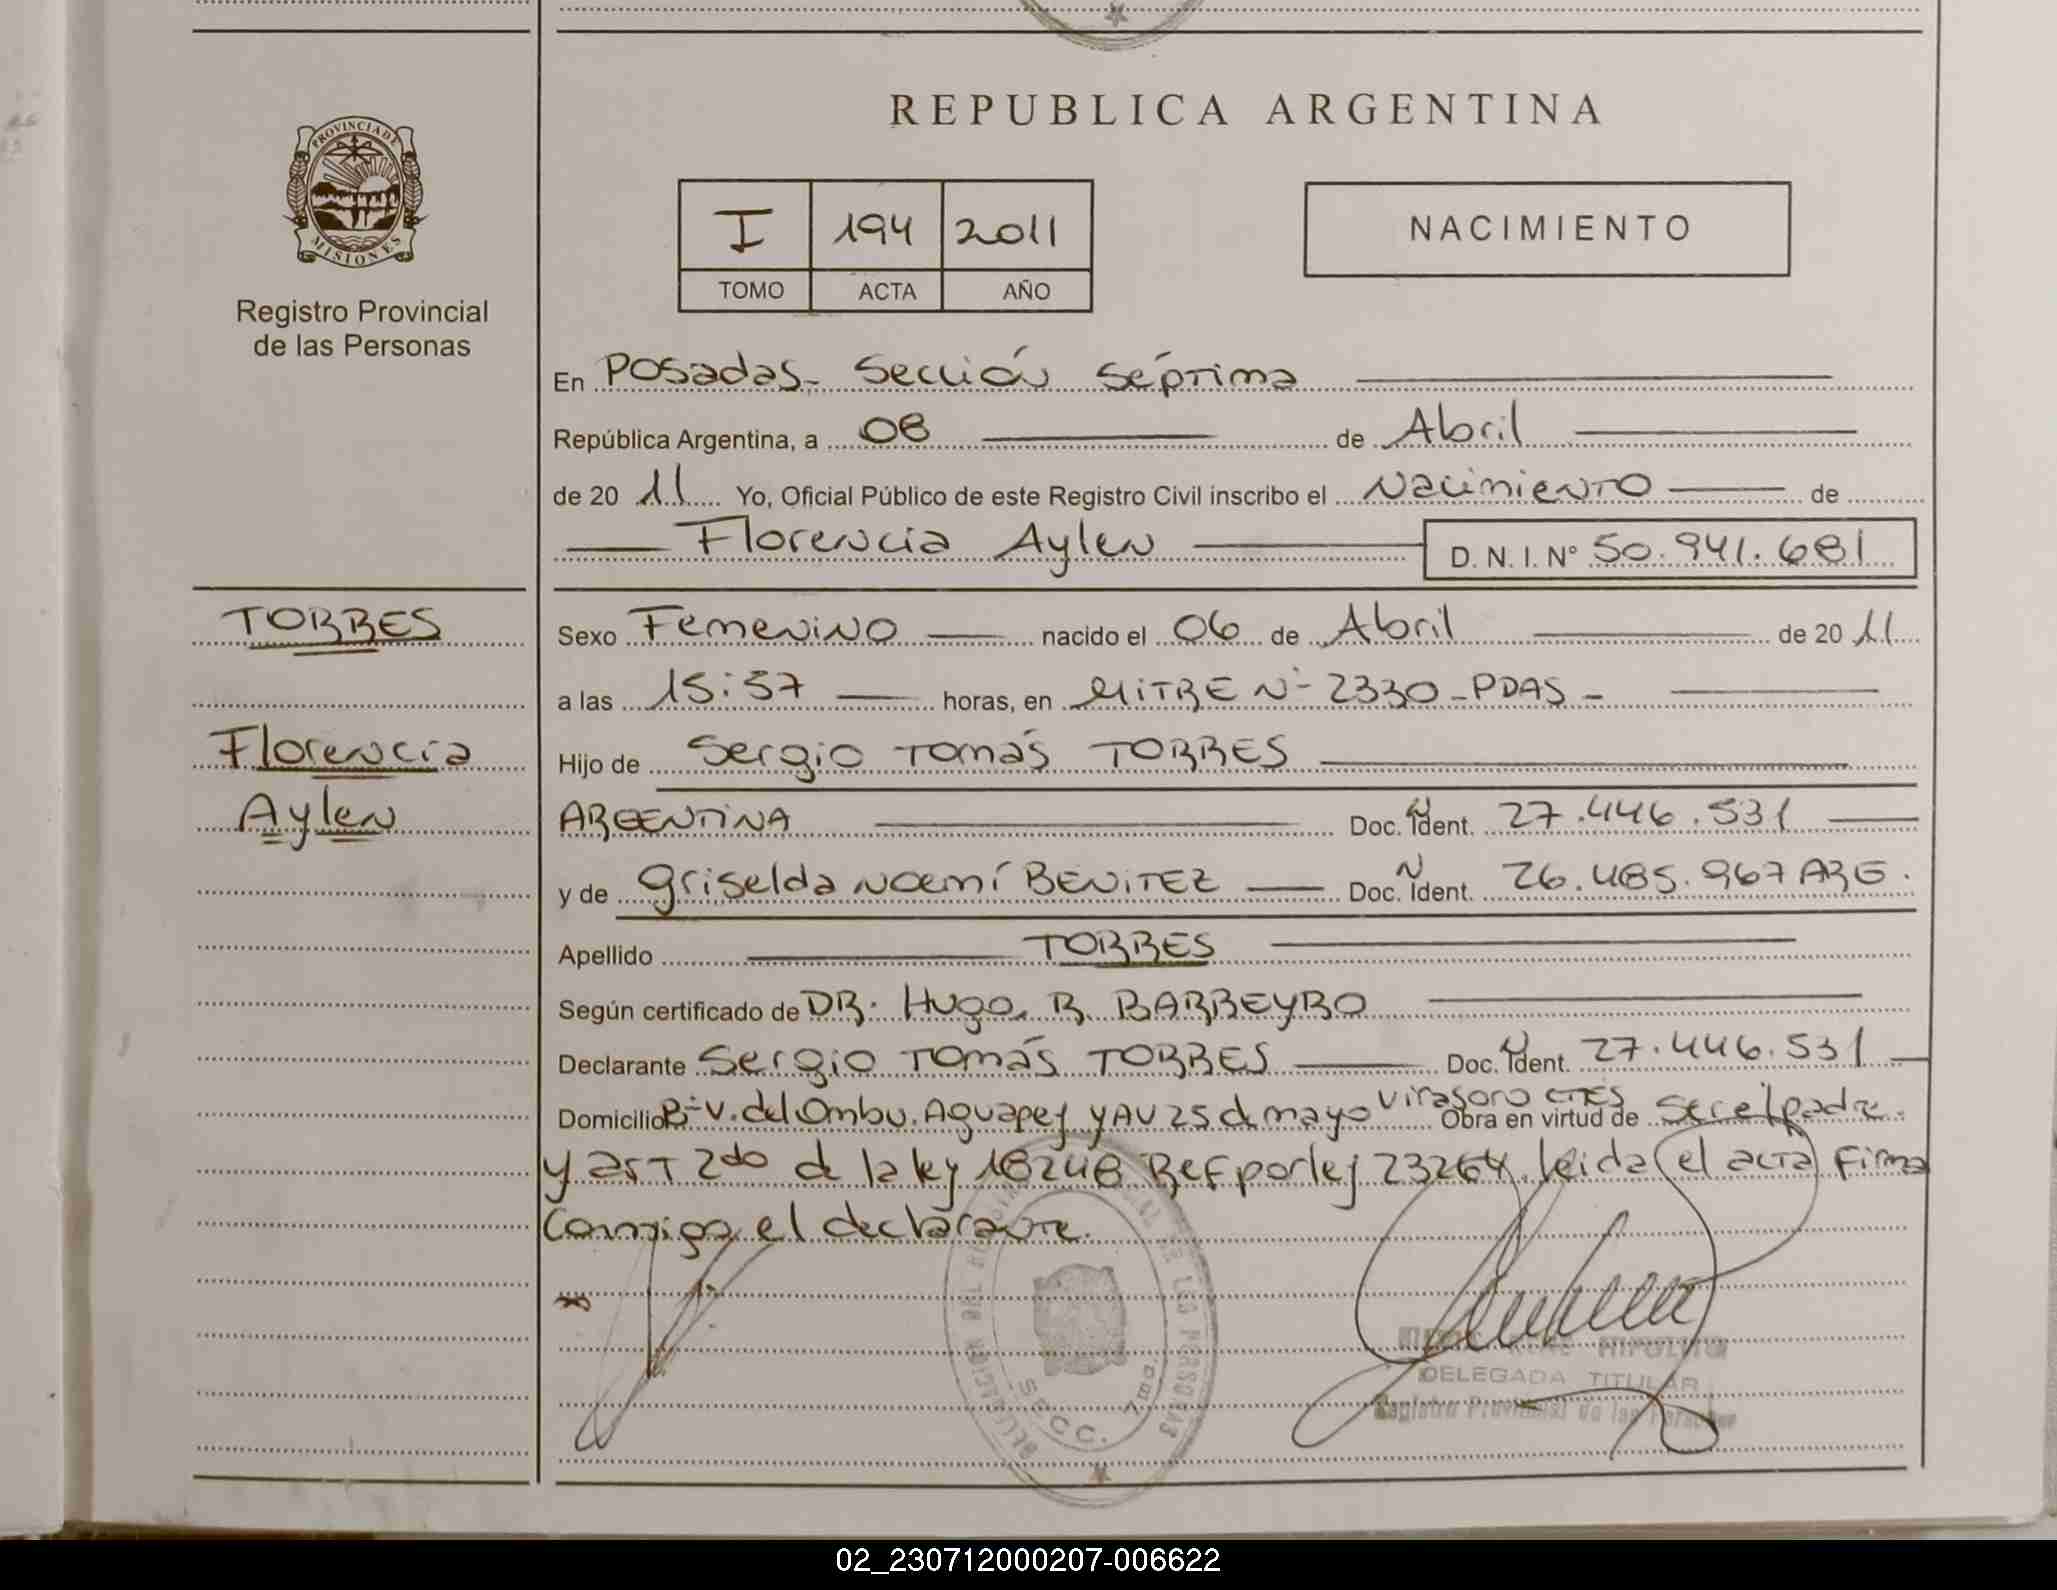 PROVINCIA DE
MISIONES
Registro Provincial
de las Personas
REPUBLICA ARGENTINA
I 194 2011
TOMO ACTA AÑO
NACIMIENTO
En Posadas - Sección Séptima
República Argentina, a 08 de Abril
de 20 11 Yo, Oficial Público de este Registro Civil inscribo el Nacimiento de
Florencia Aylen D. N. I. Nº 50.941.681
TORRES
Sexo Femenino nacido el 06 de Abril de 20 11
a las 15:57 horas, en MITRE Nº 2330 - PDAS -
Florencia
Hijo de Sergio Tomás TORRES
Aylen
ARGENTINA Doc. N Ident. 27.446.531
y de Griselda Noemí BENITEZ Doc. N Ident. 26.485.967 ARG.
Apellido TORRES
Según certificado de DR. Hugo. R. BARREYRO
Declarante Sergio Tomás TORRES Doc. N Ident. 27.446.531
Domicilio Bº V. del Ombu. Aguapey y AV 25 d mayo Virasoro CTES Obra en virtud de Ser el padre
y art 2do d la ley 18248 Ref por ley 23264. leida el acta firma
Conmigo el declarante.
DELEGACION DEL REGISTRO PROVINCIAL DE LAS PERSONAS
SECC. 7ma.
HIPOLITO
DELEGADA TITULAR
Registro Provincial de las Personas
02_230712000207-006622